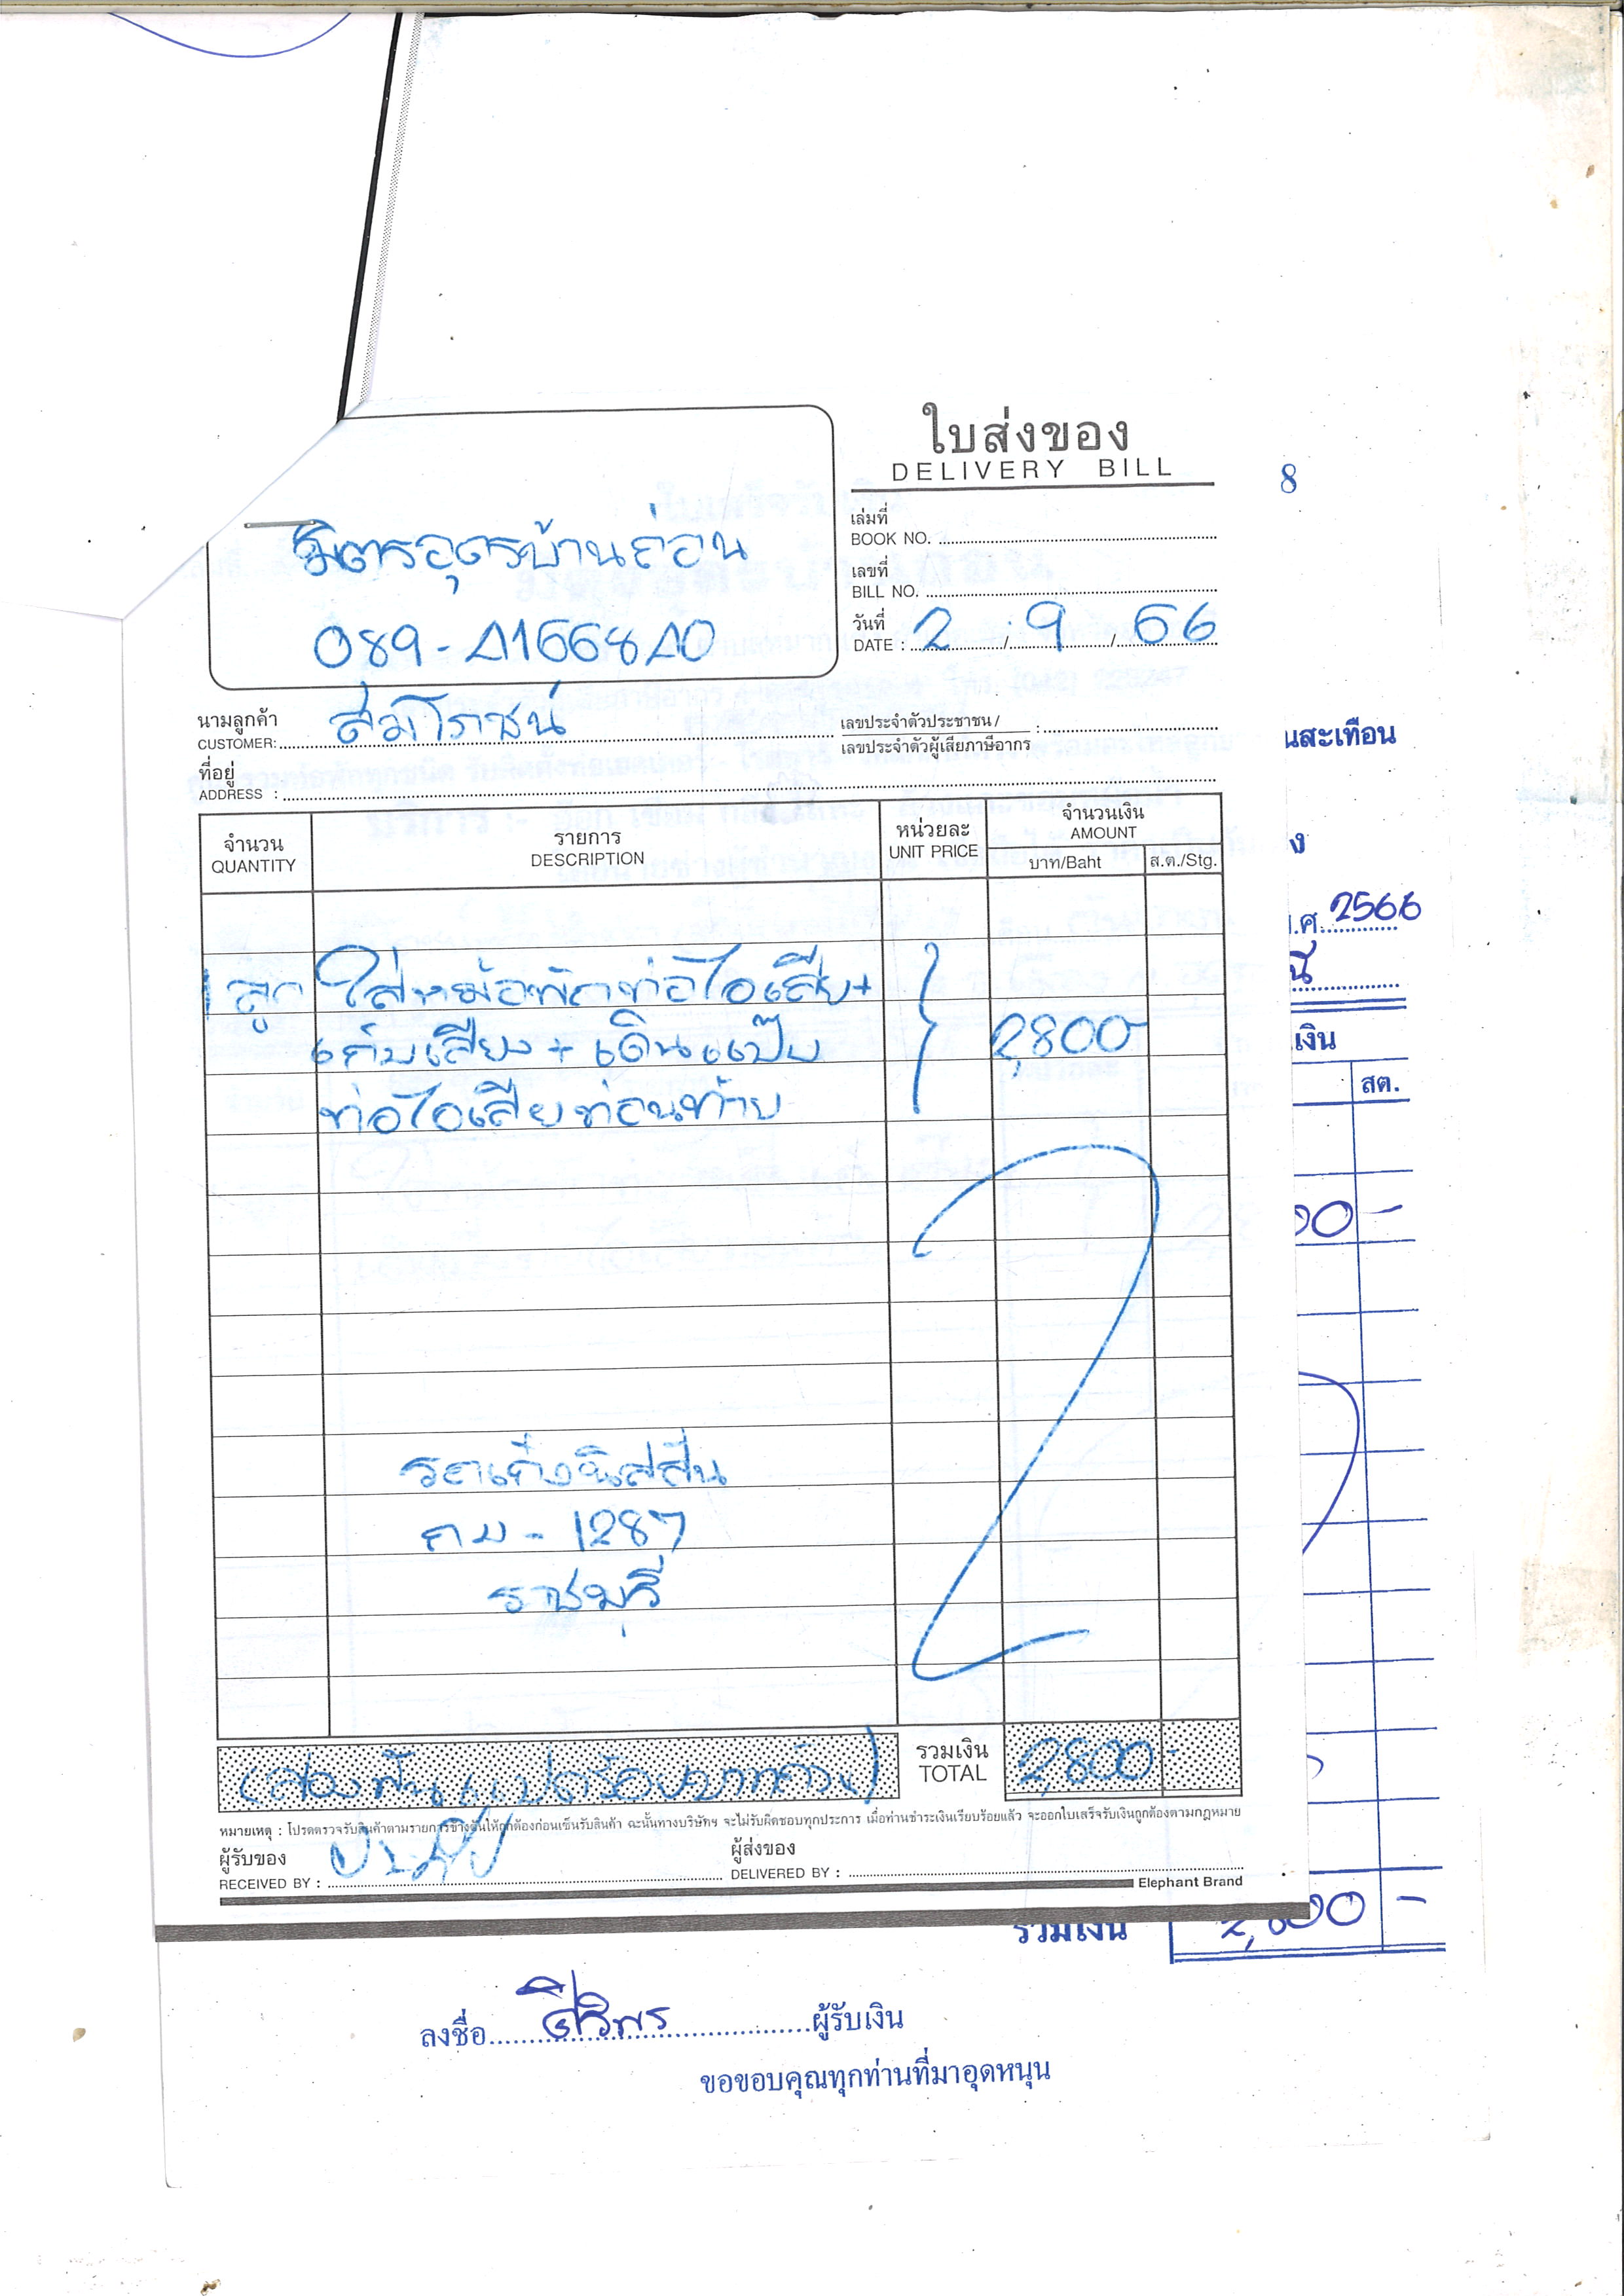 ใบส่งของ
DELIVERY BILL
8
เล่มที่
BOOK NO.
มิตรอุดรบ้านถ่อน
เลขที่
BILL NO.
089-4156840
วันที่
DATE : 2 / 9 / 66
นามลูกค้า
CUSTOMER: ส่มโภชน์
เลขประจำตัวประชาชน /
เลขประจำตัวผู้เสียภาษีอากร :
นสะเทือน
ที่อยู่
ADDRESS :
จำนวน รายการ หน่วยละ จำนวนเงิน
QUANTITY DESCRIPTION UNIT PRICE AMOUNT
บาท/Baht ส.ต./Stg.
ง
.ศ. 2566
1 ลูก ใส่หม้อพักท่อไอเสีย+
เก็บเสียง + เดินแป๊บ 2,800-
เงิน
สต.
ท่อไอเสียท่อนท้าย
00 -
รถเก๋งนิสสัน
กม - 1287
ราชบุรี
(สองพันแปดร้อยบาทถ้วน) รวมเงิน 2,800-
TOTAL
หมายเหตุ : โปรดตรวจรับสินค้าตามรายการข้างต้นให้ถูกต้องก่อนเซ็นรับสินค้า ฉะนั้นทางบริษัทฯ จะไม่รับผิดชอบทุกประการ เมื่อท่านชำระเงินเรียบร้อยแล้ว จะออกใบเสร็จรับเงินถูกต้องตามกฎหมาย
ผู้รับของ ผู้ส่งของ
RECEIVED BY : DELIVERED BY :
Elephant Brand
รวมเงิน 2,800 -
ลงชื่อ ศิริพร ผู้รับเงิน
ขอขอบคุณทุกท่านที่มาอุดหนุน